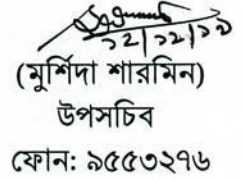 ১২/১২/১৯
(মুর্শিদা শারমিন)
উপসচিব
ফোন: ৯৫৫৩২৭৬